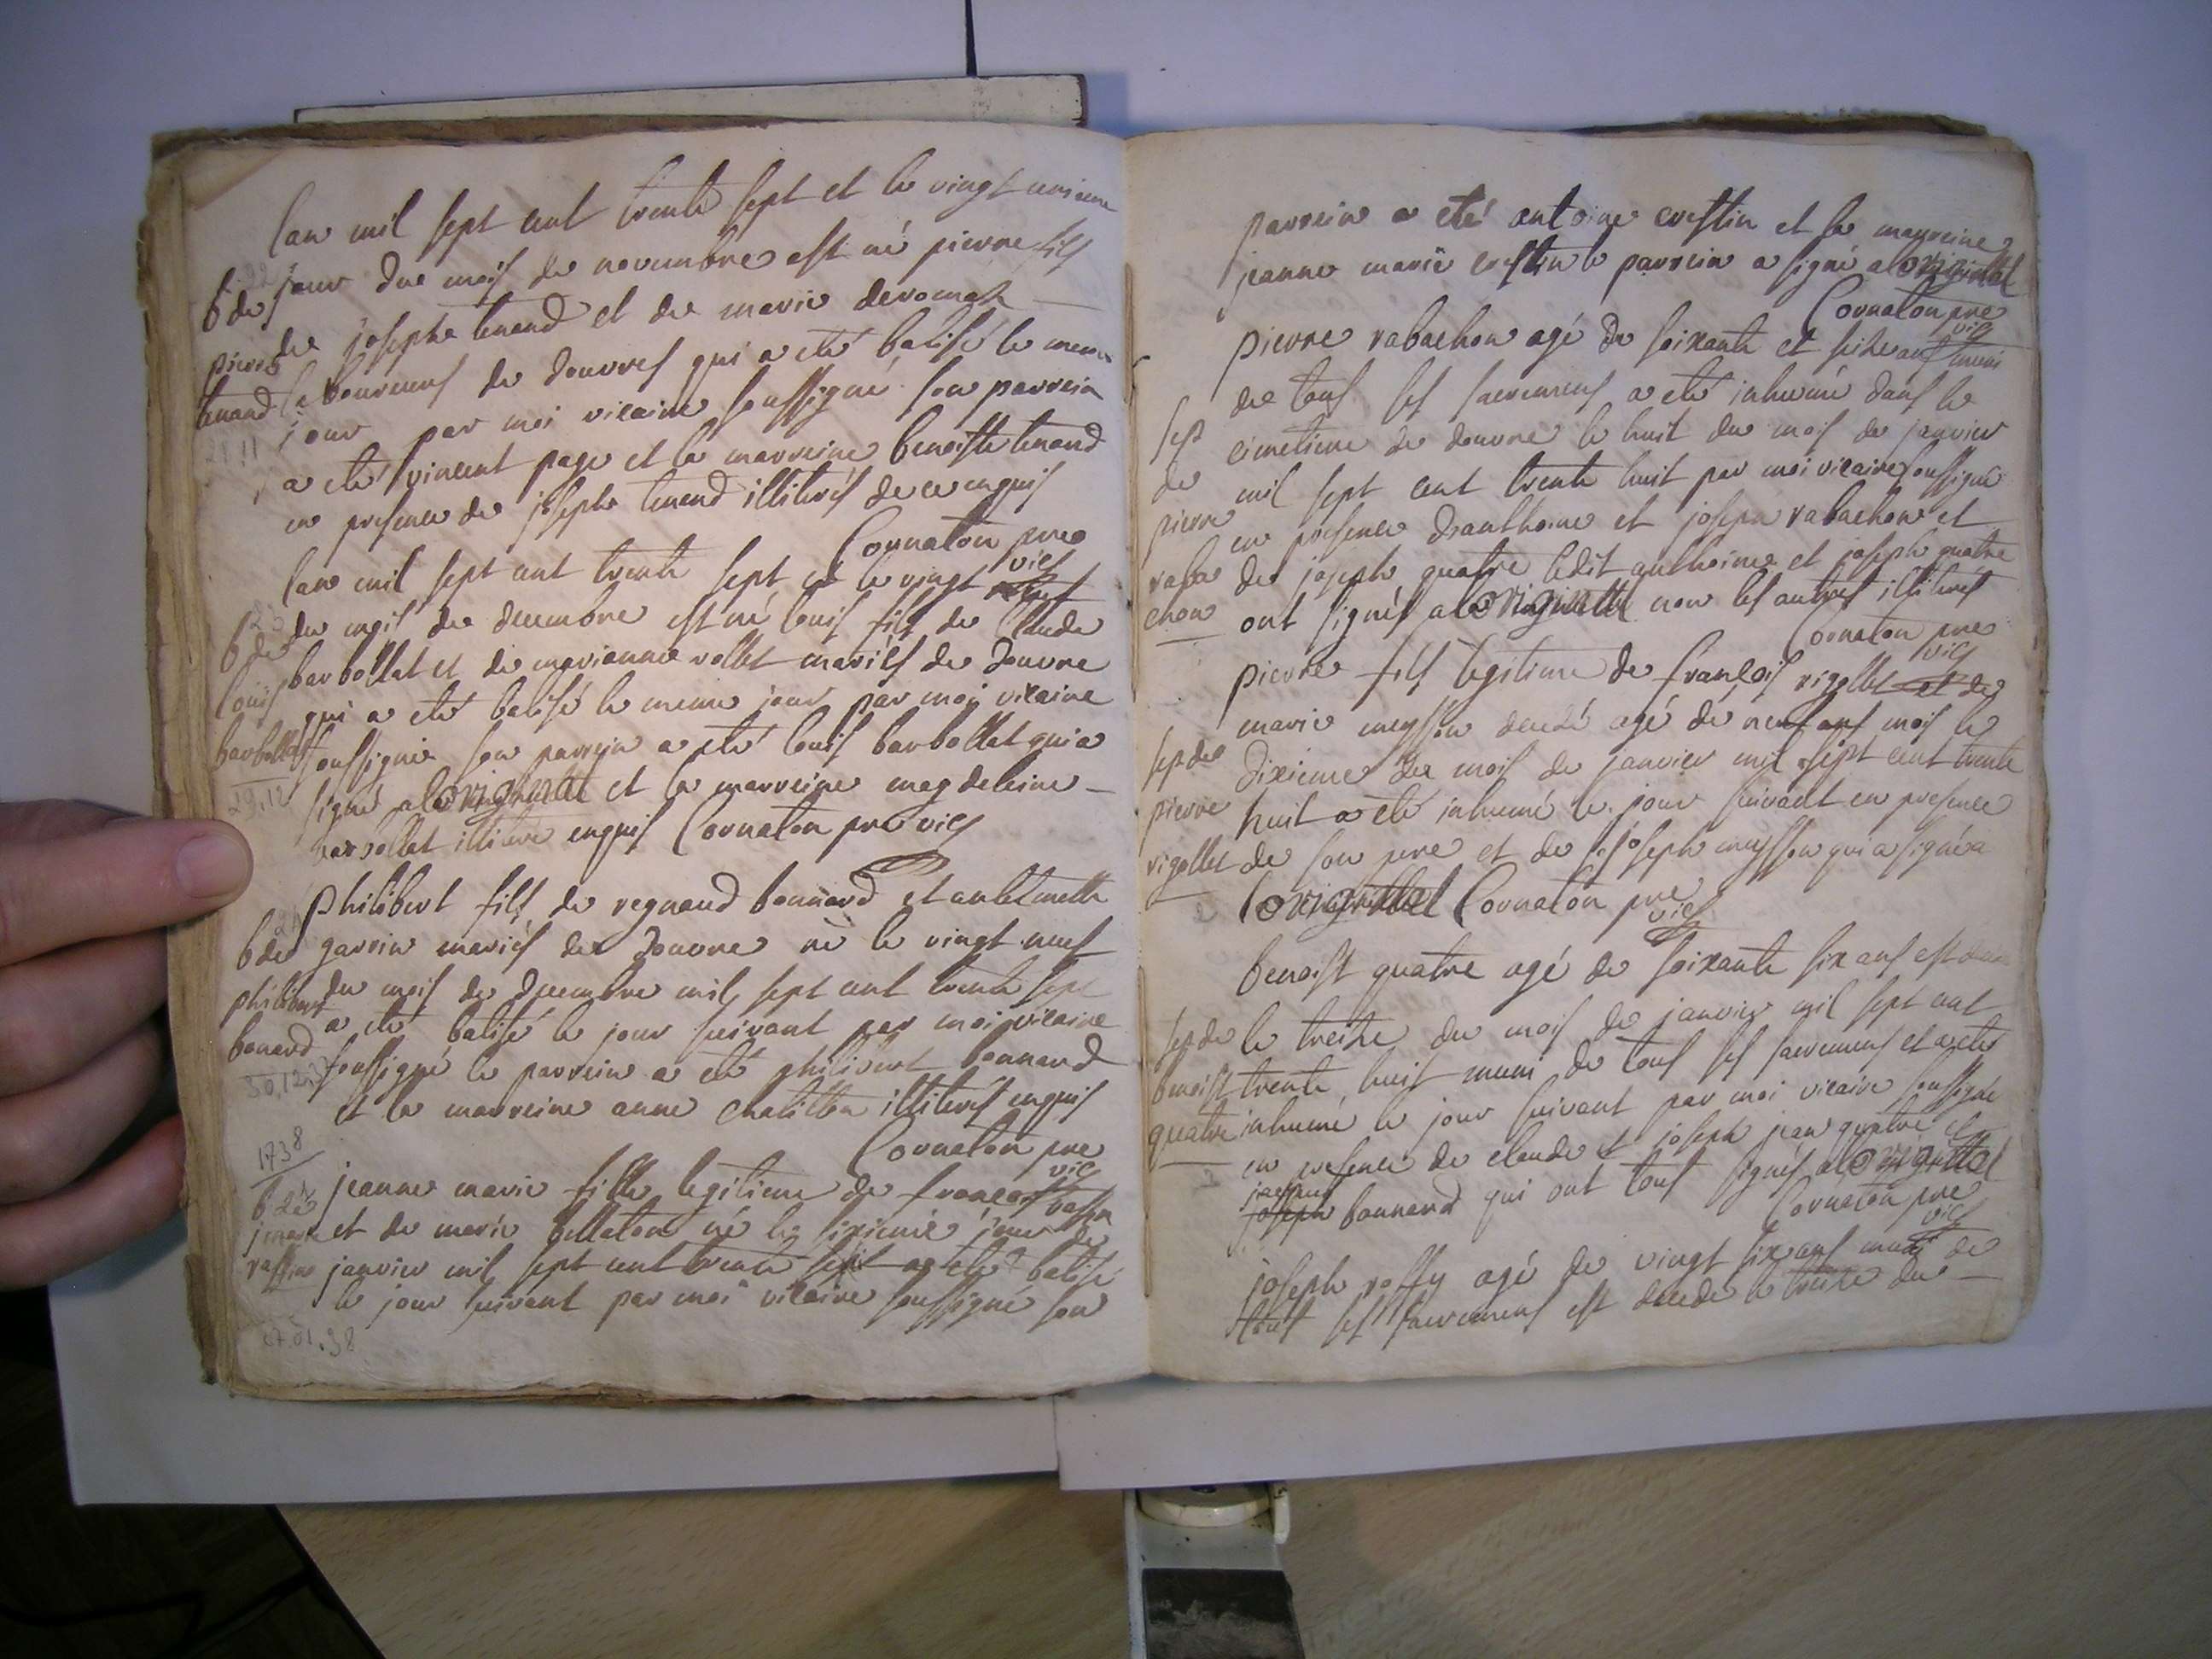 lan mil sept cent trente sept et le vingt unieme
jour du mois de novembre est né pierre fils
de josephe tenand et de marie deromas
laboureurs de douvres qui a eté batisé le meme
jour par moi vicaire soussigné son parrein
a eté vincent page et la marreine benoiste tenand
en presence de josephe tenand illiterés de ce enquis
Cornaton pre vic
b de
pierre
tenand
21.11
lan mil sept cent trente sept et le vingt neuf
du mois de decembre est né louis fils de claude
barbollat et de marianne rollet mariés de douvre
qui a eté batisé le meme jour par moy vicaire
soussigné son parrein a eté louis barbollat qui a
signé a loriginal et la marreine magdeleine
barbollat illiteré enquis Cornaton pre vic
b de
louis
barbollat
29.12
philibert fils de regnaud bonnard et antelmette
garrin mariés de douvre né le vingt neuf
du mois de decembre mil sept cent trente sept
a eté batisé le jour suivant par moi vicaire
soussigné le parrein a eté philibert bonnard
et la marreine anne chatillon illiterés enquis
Cornaton pre vic
b de
philibert
bonard
30.12
1738
jeanne marie fille legitime de françois raffin
et de marie billaton né le sixieme jour de
janvier mil sept cent trente huit a eté batisé
le jour suivant par moi vicaire soussigné son
b de
j marie
raffin
07.01.38
parrein a eté antoine crestin et la marreine
jeanne marie crestin le parrein a signé a loriginal
Cornaton pre vic
pierre rabachon agé de soixante et seize ans muni
de tous ses sacremens a eté inhumé dans le
cimetiere de douvre le huit du mois de janvier
mil sept cent trente huit par moi vicaire soussigné
en presence danthoine et joseph rabachon et
de joseph quatre ledit anthoine et joseph quatre
ont signés a loriginal non les autres illiterés
Cornaton pre vic
sep
de
pierre
raba
chon
pierre fils legitime de françois rigollet et de
marie meysson decedé agé de neuf mois le
dixieme du mois de janvier mil sept cent trente
huit a eté inhumé le jour suivant en presence
de son pere et de joseph meysson qui a signé a
loriginal Cornaton pre vic
sep de
pierre
rigollet
benoist quatre agé de soixante six ans est
le treize du mois de janvier mil sept cent
trente huit muni de tous ses sacremens et a eté
inhumé le jour suivant par moi vicaire soussigné
en presence de claude et joseph jean quatre et
joseph bonnard qui ont tous signés a loriginal
Cornaton pre vic
sep de
benoist
quatre
joseph roffy agé de vingt six ans muni de
tous ses sacremens est decedé le treize du